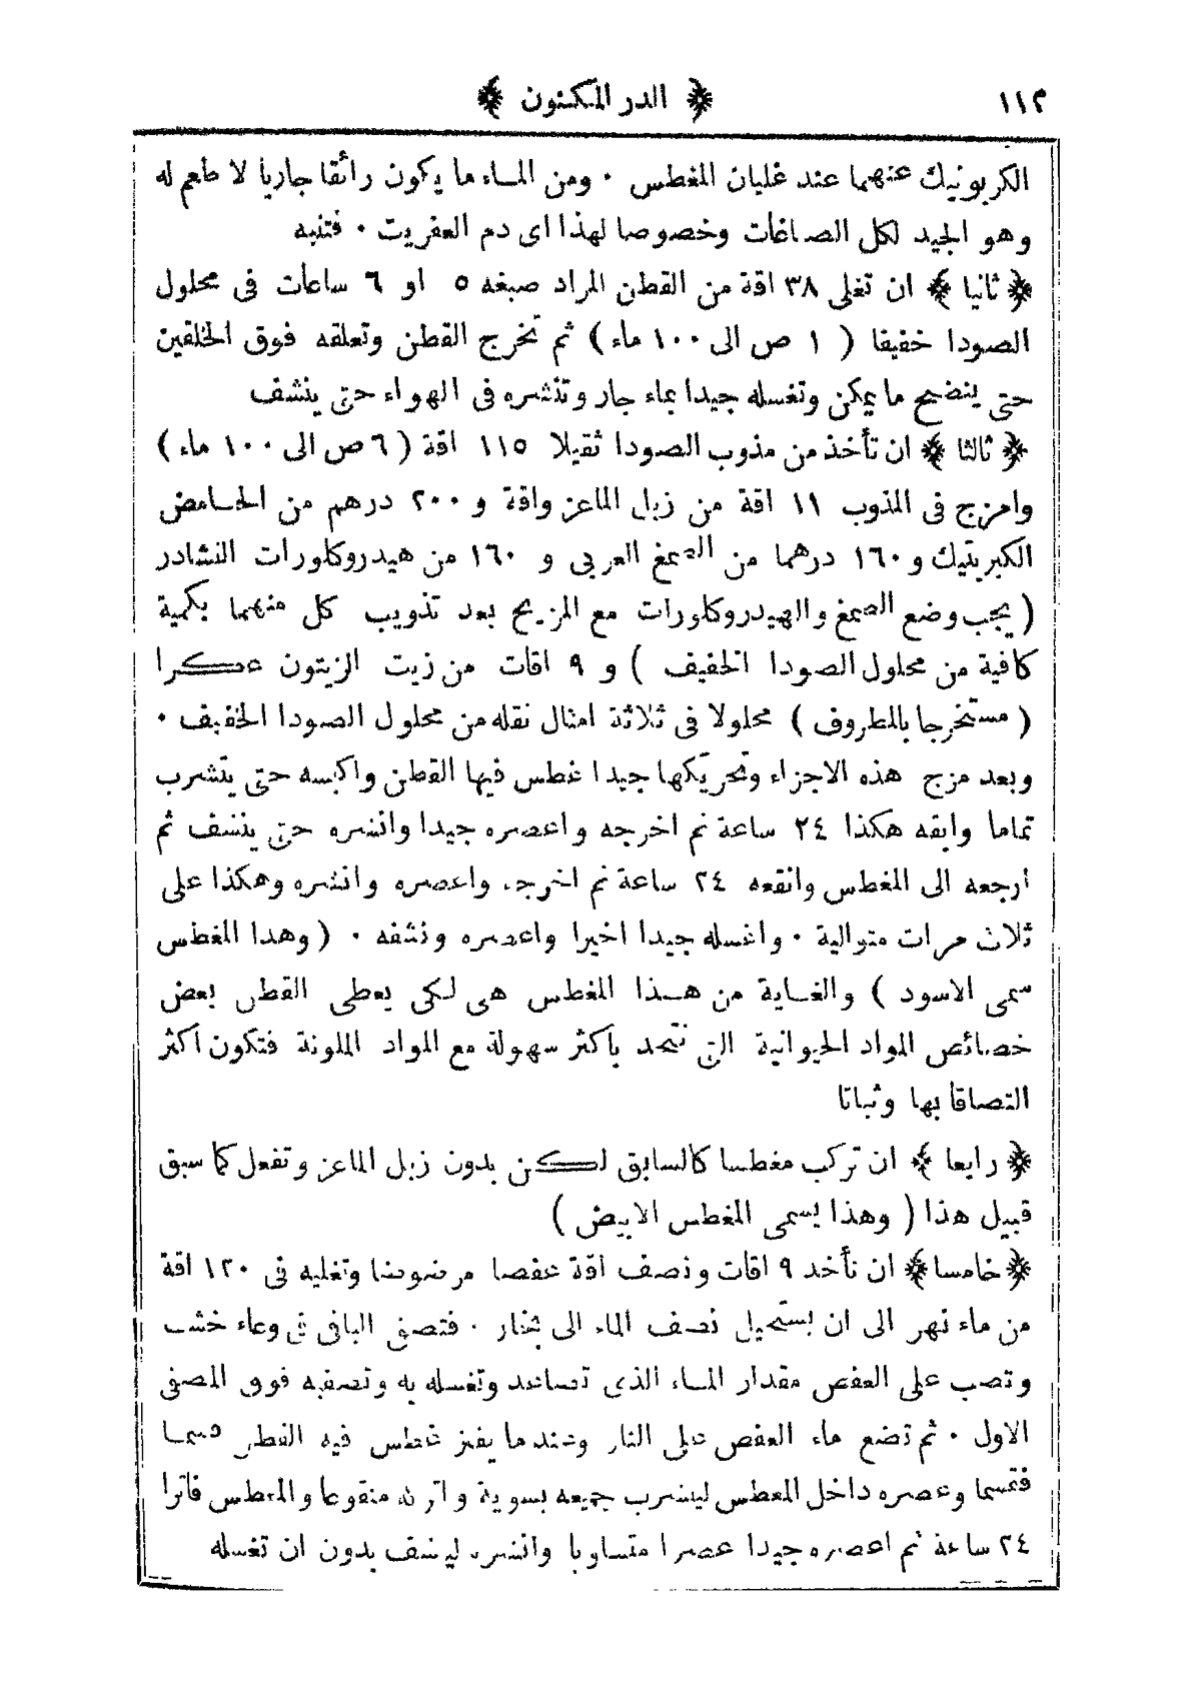 ١١٢ ﴿ الدر المكنون ﴾
الكربونيك عنهما عند غليان المغطس ۰ ومن الماء ما يكون رائقا جاريا لا طعم له
وهو الجيد لكل الصباغات وخصوصا لهذا اى دم العفريت ۰ فتنبه
﴿ ثانيا ﴾ ان تغلى ٣٨ اقة من القطن المراد صبغه ٥ او ٦ ساعات فى محلول
الصودا خفيفا ( ١ ص الى ١٠٠ ماء ) ثم تخرج القطن وتعلقه فوق الخلقين
حتى ينضح ما يمكن وتغسله جيدا بماء جار وتنشره فى الهواء حتى ينشف
﴿ ثالثا ﴾ ان تأخذ من مذوب الصودا ثقيلا ١١٥ اقة ( ٦ ص الى ١٠٠ ماء )
وامزج فى المذوب ١١ اقة من زبل الماعز واقة و ٢٠٠ درهم من الحامض
الكبريتيك و ١٦٠ درهما من الصمغ العربى و ١٦٠ من هيدروكلورات النشادر
( يجب وضع الصمغ والهيدروكلورات مع المزيج بعد تذويب كل منهما بكمية
كافية من محلول الصودا الخفيف ) و ٩ اقات من زيت الزيتون عكرا
( مستخرجا بالمطروف ) محلولا فى ثلاثة امثال نقله من محلول الصودا الخفيف ۰
وبعد مزج هذه الاجزاء وتحريكها جيدا غطس فيها القطن واكبسه حتى يتشرب
تماما وابقه هكذا ٢٤ ساعة ثم اخرجه واعصره جيدا وانشره حتى ينشف ثم
ارجعه الى المغطس وانقعه ٢٤ ساعة ثم اخرجه واعصره وانشره وهكذا على
ثلاث مرات متوالية ۰ واغسله جيدا اخيرا واعصره ونشفه ۰ ( وهذا المغطس
سمى الاسود ) والغاية من هذا المغطس هى لكى يعطى القطن بعض
خصائص المواد الحيوانية التى تتحد بأكثر سهولة مع المواد الملونة فتكون اكثر
التصاقا بها وثباتا
﴿ رابعا ﴾ ان تركب مغطسا كالسابق لكن بدون زبل الماعز وتفعل كما سبق
قبيل هذا ( وهذا يسمى المغطس الابيض )
﴿ خامسا ﴾ ان تأخذ ٩ اقات ونصف اقة عفصا مرضوضا وتغليه فى ١٢٠ اقة
من ماء نهر الى ان يستحيل نصف الماء الى بخار ۰ فتصفى الباقى فى وعاء خشب
وتصب على العفص مقدار الماء الذى تصاعد وتغسله به وتصفيه فوق المصفى
الاول ۰ ثم تضع ماء العفص على النار وعندما يفتر غطس فيه القطن قسما
فقسما وعصره داخل المغطس ليتشرب جميعه بسوية واتركه منقوعا والمغطس فاترا
٢٤ ساعة ثم اعصره جيدا عصرا متساويا وانشره لينشف بدون ان تغسله